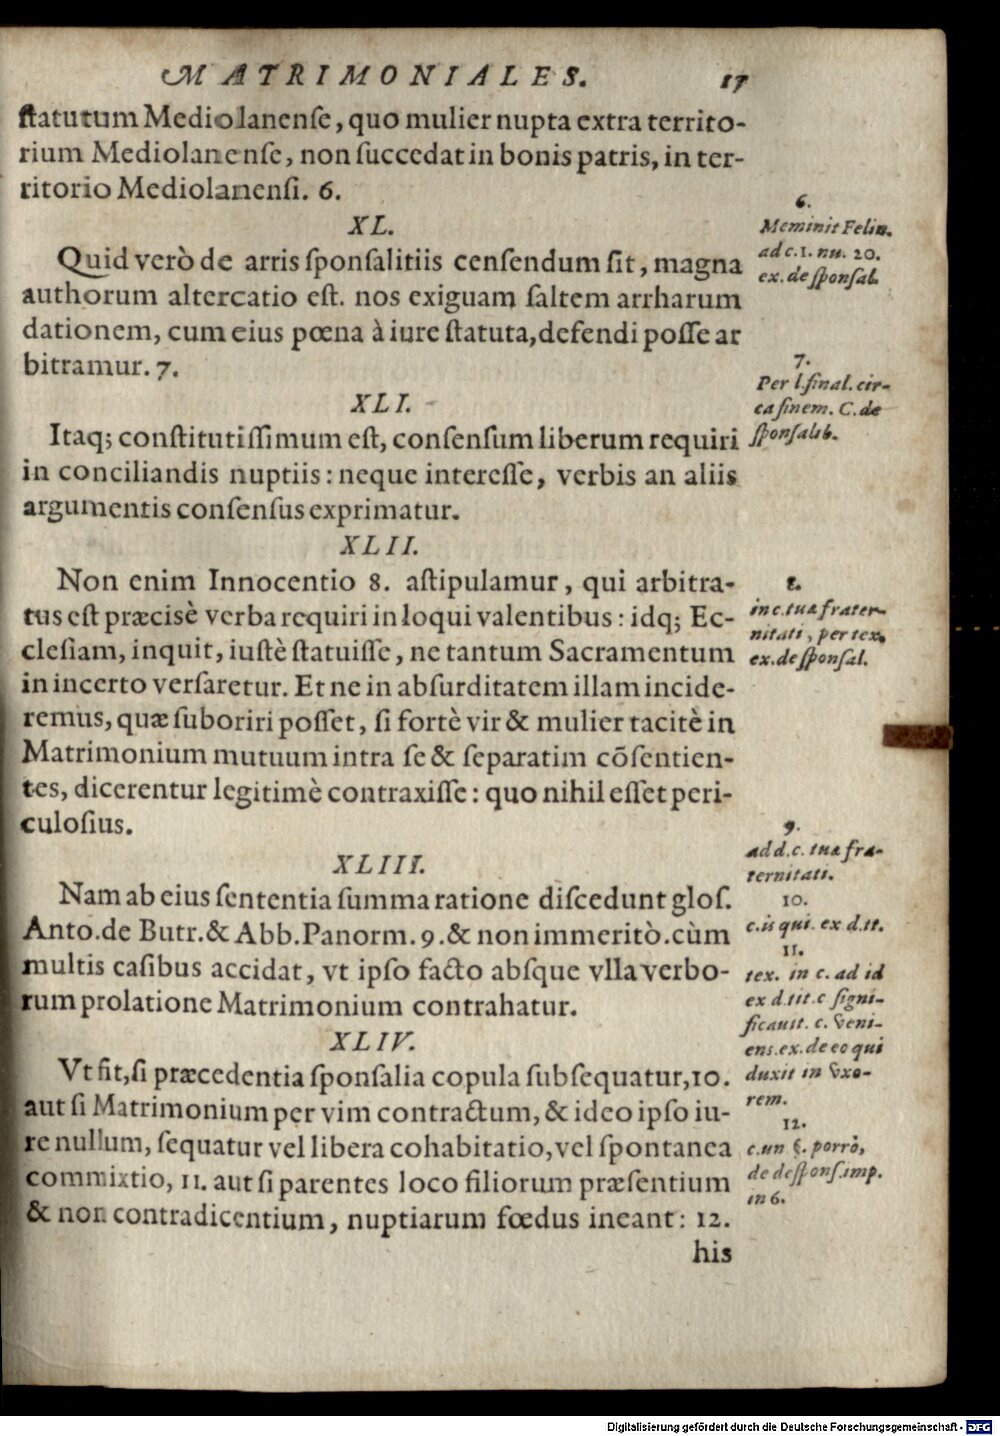 MATRIMONIALES. 17
ſtatutum Mediolanenſe, quo mulier nupta extra territo-
rium Mediolanenſe, non ſuccedat in bonis patris, in ter-
ritorio Mediolanenſi. 6.
XL.
Quid verò de arris ſponſalitiis cenſendum ſit, magna
authorum altercatio eſt. nos exiguam ſaltem arrharum
dationem, cum eius pœna à iure ſtatuta, defendi poſſe ar
bitramur. 7.
XLI.
Itaq; conſtitutiſſimum eſt, conſenſum liberum requiri
in conciliandis nuptiis: neque intereſſe, verbis an aliis
argumentis conſenſus exprimatur.
XLII.
Non enim Innocentio 8. aſtipulamur, qui arbitra-
tus eſt præcisè verba requiri in loqui valentibus: idq; Ec-
cleſiam, inquit, iuſtè ſtatuiſſe, ne tantum Sacramentum
in incerto verſaretur. Et ne in abſurditatem illam incide-
remus, quæ ſuboriri poſſet, ſi fortè vir & mulier tacitè in
Matrimonium mutuum intra ſe & ſeparatim cõſentien-
tes, dicerentur legitimè contraxiſſe: quo nihil eſſet peri-
culoſius.
XLIII.
Nam ab eius ſententia ſumma ratione diſcedunt gloſ.
Anto. de Butr. & Abb. Panorm. 9. & non immeritò. cùm
multis caſibus accidat, vt ipſo facto abſque vlla verbo-
rum prolatione Matrimonium contrahatur.
XLIV.
Vt ſit, ſi præcedentia ſponſalia copula ſubſequatur, 10.
aut ſi Matrimonium per vim contractum, & ideo ipſo iu-
re nullum, ſequatur vel libera cohabitatio, vel ſpontanea
commixtio, 11. aut ſi parentes loco filiorum præſentium
& non contradicentium, nuptiarum fœdus ineant: 12.
his
6.
Meminit Felin.
ad c. 1. nu. 20.
ex. de ſponſal.
7.
Per l. final. cir-
ca finem. C. de
ſponſalib.
8.
in c. tua frater-
nitati, per tex.
ex. de ſponſal.
9.
ad d. c. tua fra-
ternitati.
10.
c. is qui. ex d. tt.
11.
tex. in c. ad id
ex d. tit. c ſigni-
ficauit. c. veni-
ens. ex. de eo qui
duxit in vxo-
rem.
12.
c. un §. porrò,
de deſponſ. imp.
in 6.
Digitalisierung gefördert durch die Deutsche Forschungsgemeinschaft - DFG